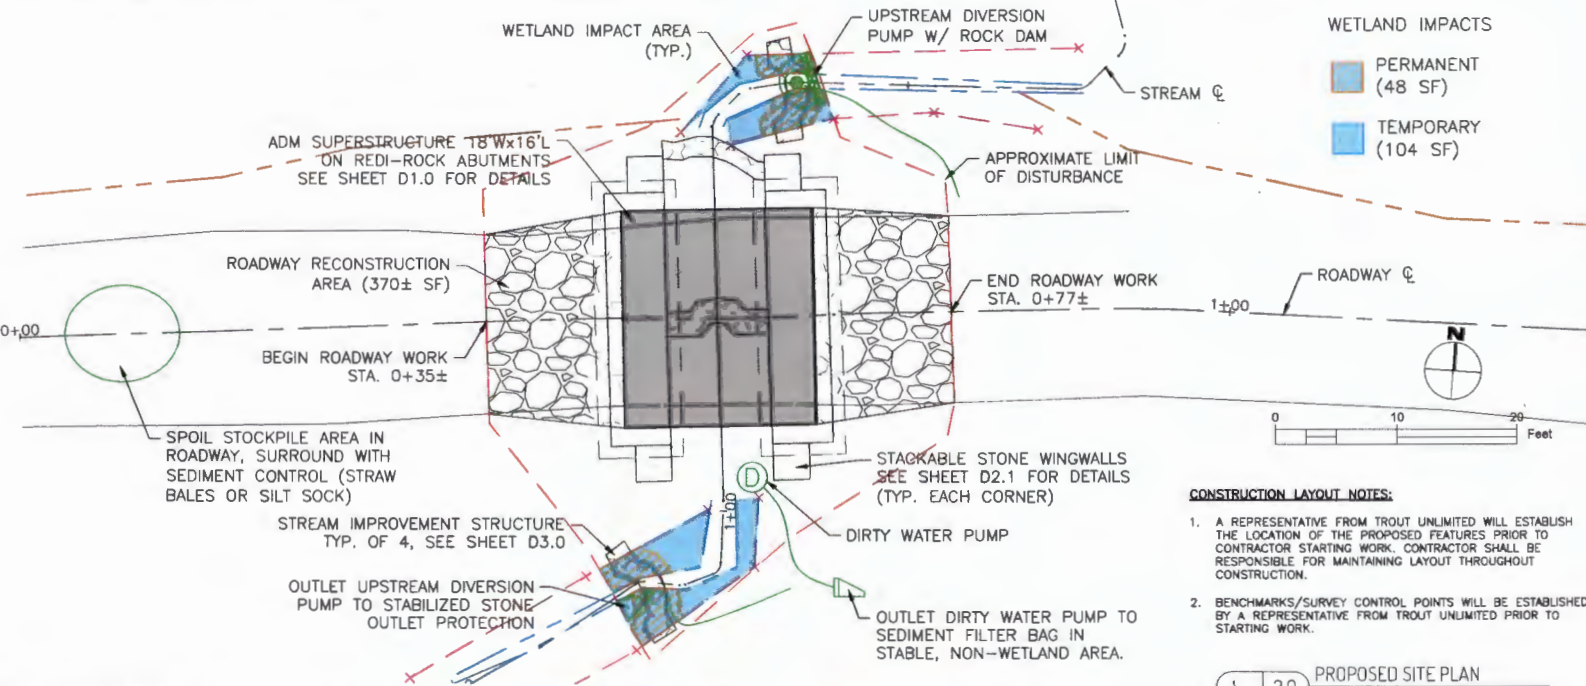 WETLAND IMPACT AREA
(TYP.)
UPSTREAM DIVERSION
PUMP W/ ROCK DAM
WETLAND IMPACTS
PERMANENT
(48 SF)
TEMPORARY
(104 SF)
STREAM ℄
ADM SUPERSTRUCTURE 18'Wx16'L
ON REDI-ROCK ABUTMENTS
SEE SHEET D1.0 FOR DETAILS
APPROXIMATE LIMIT
OF DISTURBANCE
ROADWAY RECONSTRUCTION
AREA (370± SF)
END ROADWAY WORK
STA. 0+77±
ROADWAY ℄
0+00
1+00
BEGIN ROADWAY WORK
STA. 0+35±
N
0 10 20
Feet
SPOIL STOCKPILE AREA IN
ROADWAY, SURROUND WITH
SEDIMENT CONTROL (STRAW
BALES OR SILT SOCK)
STACKABLE STONE WINGWALLS
SEE SHEET D2.1 FOR DETAILS
(TYP. EACH CORNER)
D
1+00
STREAM IMPROVEMENT STRUCTURE
TYP. OF 4, SEE SHEET D3.0
DIRTY WATER PUMP
OUTLET UPSTREAM DIVERSION
PUMP TO STABILIZED STONE
OUTLET PROTECTION
OUTLET DIRTY WATER PUMP TO
SEDIMENT FILTER BAG IN
STABLE, NON-WETLAND AREA.
CONSTRUCTION LAYOUT NOTES:
1. A REPRESENTATIVE FROM TROUT UNLIMITED WILL ESTABLISH
THE LOCATION OF THE PROPOSED FEATURES PRIOR TO
CONTRACTOR STARTING WORK. CONTRACTOR SHALL BE
RESPONSIBLE FOR MAINTAINING LAYOUT THROUGHOUT
CONSTRUCTION.
2. BENCHMARKS/SURVEY CONTROL POINTS WILL BE ESTABLISHED
BY A REPRESENTATIVE FROM TROUT UNLIMITED PRIOR TO
STARTING WORK.
PROPOSED SITE PLAN